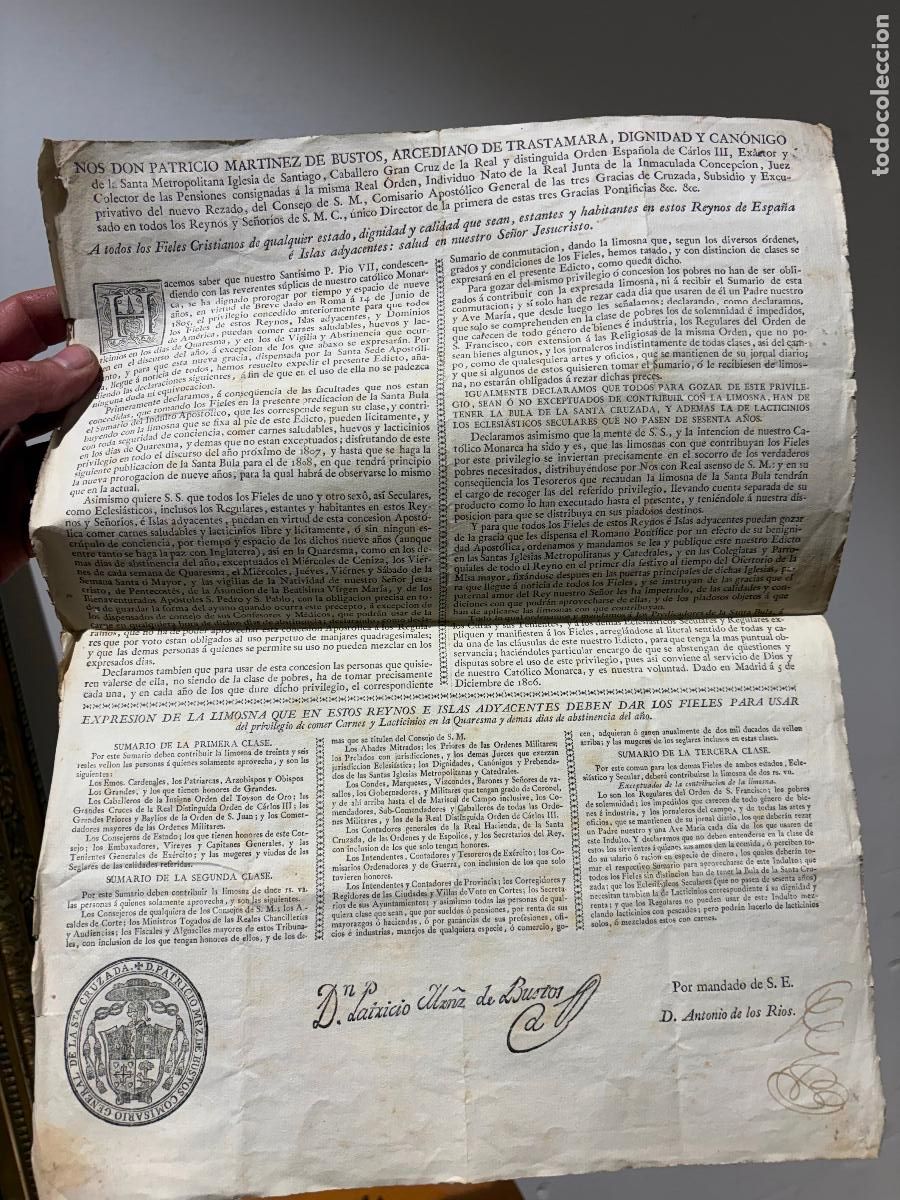 NOS DON PATRICIO MARTINEZ DE BUSTOS, ARCEDIANO DE TRASTAMARA, DIGNIDAD Y CANÓNIGO
de la Santa Metropolitana Iglesia de Santiago, Caballero Gran Cruz de la Real y distinguida Orden Española de Cárlos III, Exâctor y
Colector de las Pensiones consignadas á la misma Real Órden, Individuo Nato de la Real Junta de la Inmaculada Concepcion, Juez
privativo del nuevo Rezado, del Consejo de S. M., Comisario Apostólico General de las tres Gracias de Cruzada, Subsidio y Excu-
sado en todos los Reynos y Señoríos de S. M. C., único Director de la primera de estas tres Gracias Pontificias &c. &c.
A todos los Fieles Cristianos de qualquier estado, dignidad y calidad que sean, estantes y habitantes en estos Reynos de España
é Islas adyacentes: salud en nuestro Señor Jesucristo.
Hacemos saber que nuestro Santísimo P. Pio VII, condescen-
diendo con las reverentes súplicas de nuestro católico Monar-
ca, se ha dignado prorogar por tiempo y espacio de nueve
años, en virtud de Breve dado en Roma á 14 de Junio de
1805, el privilegio concedido anteriormente para que todos
los Fieles de estos Reynos, Islas adyacentes, y Dominios
de América, puedan comer carnes saludables, huevos y lac-
ticinios en los dias de Quaresma, y en los de Vigilia y Abstinencia que ocur-
ren en el discurso del año, á excepcion de los que abaxo se expresarán. Por
tanto, y para que esta nueva gracia, dispensada por la Santa Sede Apostóli-
ca, llegue á noticia de todos, hemos resuelto expedir el presente Edicto, aña-
diendo las declaraciones siguientes, á fin de que en el uso de ella no se padezca
ninguna duda ni equivocacion.
Primeramente declaramos, á conseqüencia de las facultades que nos estan
concedidas, que tomando los Fieles en la presente predicacion de la Santa Bula
el Sumario del Indulto Apostólico, que les corresponde segun su clase, y contri-
buyendo con la limosna que se fixa al pie de este Edicto, pueden lícitamente, y
con toda seguridad de conciencia, comer carnes saludables, huevos y lacticinios
en los dias de Quaresma, y demas que no estan exceptuados; disfrutando de este
privilegio en todo el discurso del año próximo de 1807, y hasta que se haga la
siguiente publicacion de la Santa Bula para el de 1808, en que tendrá principio
la nueva prorogacion de nueve años, para la qual habrá de observarse lo mismo
que en la actual.
Asimismo quiere S. S. que todos los Fieles de uno y otro sexô, así Seculares,
como Eclesiásticos, inclusos los Regulares, estantes y habitantes en estos Rey-
nos y Señoríos, é Islas adyacentes, puedan en virtud de esta concesion Apostó-
lica comer carnes saludables y lacticinios libre y lícitamente, ó sin ningun es-
crúpulo de conciencia, por tiempo y espacio de los dichos nueve años (aunque
entre tanto se haga la paz con Inglaterra), así en la Quaresma, como en los de-
mas dias de abstinencia del año, exceptuados el Miércoles de Ceniza, los Viér-
nes de cada semana de Quaresma, el Miércoles, Juéves, Viérnes y Sábado de la
Semana Santa ó Mayor, y las vigilias de la Natividad de nuestro Señor Jesu-
cristo, de Pentecostés, de la Asuncion de la Beatísima Vírgen María, y de los
Bienaventurados Apóstoles S. Pedro y S. Pablo, con la obligacion precisa en to-
dos de guardar la forma del ayuno quando ocurra este precepto, á excepcion de
los dispensados de consejo de sus Confesores y Médicos, que podrán usar de la
res que por voto estan obligados al uso perpetuo de manjares quadragesimales;
y que las demas personas á quienes se permite su uso no pueden mezclar en los
expresados dias.
Declaramos tambien que para usar de esta concesion las personas que quisie-
ren valerse de ella, no siendo de la clase de pobres, ha de tomar precisamente
cada una, y en cada año de los que dure dicho privilegio, el correspondiente
Sumario de conmutacion, dando la limosna que, segun los diversos órdenes,
grados y condiciones de los Fieles, hemos tasado, y con distincion de clases se
expresará en el presente Edicto, como queda dicho.
Para gozar del mismo privilegio ó concesion los pobres no han de ser obli-
gados á contribuir con la expresada limosna, ni á recibir el Sumario de esta
conmutacion; y sí solo han de rezar cada dia que usaren de él un Padre nuestro
y Ave María, que desde luego les señalamos; declarando, como declaramos,
que solo se comprehenden en la clase de pobres los de solemnidad é impedidos,
que carecen de todo género de bienes é industria, los Regulares del Orden de
S. Francisco, con extension á las Religiosas de la misma Orden, que no po-
sean bienes algunos, y los jornaleros indistintamente de todas clases, así del cam-
po, como de qualesquiera artes y oficios, que se mantienen de su jornal diario;
y que si algunos de estos quisieren tomar el Sumario, ó le recibiesen de limos-
na, no estarán obligados á rezar dichas preces.
IGUALMENTE DECLARAMOS QUE TODOS PARA GOZAR DE ESTE PRIVILE-
GIO, SEAN Ó NO EXCEPTUADOS DE CONTRIBUIR CON LA LIMOSNA, HAN DE
TENER LA BULA DE LA SANTA CRUZADA, Y ADEMAS LA DE LACTICINIOS
LOS ECLESIÁSTICOS SECULARES QUE NO PASEN DE SESENTA AÑOS.
Declaramos asimismo que la mente de S. S., y la intencion de nuestro Ca-
tólico Monarca ha sido y es, que las limosnas con que contribuyan los Fieles
por este privilegio se inviertan precisamente en el socorro de los verdaderos
pobres necesitados, distribuyéndose por Nos con Real asenso de S. M.: y en su
conseqüencia los Tesoreros que recaudan la limosna de la Santa Bula tendrán
el cargo de recoger las del referido privilegio, llevando cuenta separada de su
producto como lo han executado hasta el presente, y teniéndole á nuestra dis-
posicion para que se distribuya en sus piadosos destinos.
Y para que todos los Fieles de estos Reynos é Islas adyacentes puedan gozar
de la gracia que les dispensa el Romano Pontífice por un efecto de su benigni-
dad Apostólica, ordenamos y mandamos se lea y publique este nuestro Edicto
en las Santas Iglesias Metropolitanas y Catedrales, y en las Colegiatas y Parro-
quiales de todo el Reyno en el primer dia festivo al tiempo del Ofertorio de la
Misa mayor, fixándose despues en las puertas principales de dichas Iglesias, pa-
ra que llegue á noticia de todos los Fieles, y se instruyan de las gracias que el
paternal amor del Rey nuestro Señor les ha impetrado, de las calidades y con-
diciones con que podrán aprovecharse de ellas, y de los piadosos objetos á que
han de aplicarse las limosnas con que contribuyan.
pliquen y manifiesten á los Fieles, arreglándose al literal sentido de todas y ca-
da una de las cláusulas de este nuestro Edicto, para que tenga la mas puntual ob-
servancia; haciéndoles particular encargo de que se abstengan de qüestiones y
disputas sobre el uso de este privilegio, pues así conviene al servicio de Dios y
de nuestro Católico Monarca, y es nuestra voluntad. Dado en Madrid á 5 de
Diciembre de 1806.
EXPRESION DE LA LIMOSNA QUE EN ESTOS REYNOS E ISLAS ADYACENTES DEBEN DAR LOS FIELES PARA USAR
del privilegio de comer Carnes y Lacticinios en la Quaresma y demas dias de abstinencia del año.
SUMARIO DE LA PRIMERA CLASE.
Por este Sumario deben contribuir la limosna de treinta y seis
reales vellon las personas á quienes solamente aprovecha, y son las
siguientes:
Los Emos. Cardenales, los Patriarcas, Arzobispos y Obispos
Los Grandes, y los que tienen honores de Grandes.
Los Caballeros de la Insigne Orden del Toyson de Oro; los
Grandes Cruces de la Real Distinguida Orden de Cárlos III; los
Grandes Priores y Baylíos de la Orden de S. Juan; y los Comen-
dadores mayores de las Ordenes Militares.
Los Consejeros de Estado; los que tienen honores de este Con-
sejo; los Embaxadores, Vireyes y Capitanes Generales, y las
Tenientes Generales de Exército; y las mugeres y viudas de los
Seglares de las calidades referidas.
SUMARIO DE LA SEGUNDA CLASE.
Por este Sumario deben contribuir la limosna de doce rs. vn.
las personas á quienes solamente aprovecha, y son las siguientes.
Los Consejeros de qualquiera de los Consejos de S. M.; los Al-
caldes de Corte; los Ministros Togados de las Reales Chancillerías
y Audiencias; los Fiscales y Alguaciles mayores de estos Tribuna-
les, con inclusion de los que tengan honores de ellos, y de los de-
mas que se titulen del Consejo de S. M.
Los Abades Mitrados; los Priores de las Ordenes Militares;
los Prelados con jurisdicciones, y los demas Jueces que exerzan
jurisdiccion Eclesiástica; los Dignidades, Canónigos y Prebenda-
dos de las Santas Iglesias Metropolitanas y Catedrales.
Los Condes, Marqueses, Vizcondes, Barones y Señores de va-
sallos, los Gobernadores, y Militares que tengan grado de Coronel,
y de ahí arriba hasta el de Mariscal de Campo inclusive, los Co-
mendadores, Sub-Comendadores y Caballeros de todas las Orde-
nes Militares, y los de la Real Distinguida Orden de Cárlos III.
Los Contadores generales de la Real Hacienda, de la Santa
Cruzada, de las Ordenes y de Espolios, y los Secretarios del Rey,
con inclusion de los que solo tengan honores.
Los Intendentes, Contadores y Tesoreros de Exército; los Co-
misarios Ordenadores y de Guerra, con inclusion de los que solo
tuvieren honores.
Los Intendentes y Contadores de Provincia; los Corregidores y
Regidores de las Ciudades y Villas de Voto en Cortes; los Secreta-
rios de sus Ayuntamientos; y asimismo todas las personas de qual-
quiera clase que sean, que por sueldos ó pensiones, por renta de sus
mayorazgos ó haciendas, ó por ganancias de sus profesiones, ofi-
cios é industrias, manejos de qualquiera especie, ó comercio, go-
cen, adquieran ó ganen anualmente de dos mil ducados de vellon
arriba; y las mugeres de los seglares inclusos en estas clases.
SUMARIO DE LA TERCERA CLASE.
Por este comun para los demas Fieles de ambos estados, Ecle-
siástico y Secular, deberá contribuirse la limosna de dos rs. vn.
Exceptuados de la contribucion de la limosna.
Lo son los Regulares del Orden de S. Francisco; los pobres
de solemnidad; los impedidos que carecen de todo género de bie-
nes é industria, y los jornaleros del campo, y de todas las artes y
oficios, que se mantienen de su jornal diario, los que deberán rezar
un Padre nuestro y una Ave María cada dia de los que usaren de
este Indulto. Y declaramos que no deben entenderse en la clase de
estos los sirvientes á quienes sus amos den la comida, ó perciben to-
do su salario ó racion en especie de dinero, los quales deberán to-
mar el respectivo Sumario para aprovecharse de este Indulto: que
todos los Fieles sin distincion han de tener la Bula de la Santa Cru-
zada: que los Eclesiásticos Seculares (que no pasen de sesenta años)
necesitan tambien la de Lacticinios correspondiente á su dignidad y
renta; y que los Regulares no pueden usar de este Indulto mez-
clando lacticinios con pescados; pero podrán hacerlo de lacticinios
solos, ó mezclados estos con carnes.
D. PATRICIO MRZ. DE BUSTOS COMISARIO GENERAL DE LA STA CRUZADA.
Dn. Patricio Mrñz. de Bustos
Por mandado de S. E.
D. Antonio de los Rios.
todocoleccion